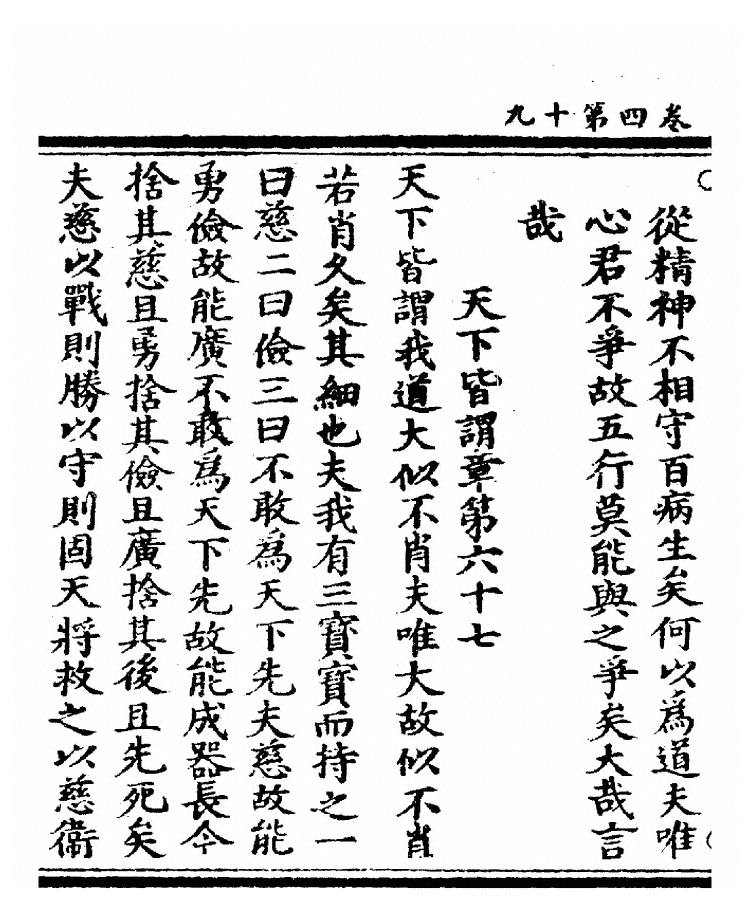 卷四第十九
從精神不相守百病生矣何以為道夫唯
心君不爭故五行莫能與之爭矣大哉言
哉
天下皆謂章第六十七
天下皆謂我道大似不肖夫唯大故似不肖
若肖久矣其細也夫我有三寶寶而持之一
曰慈二曰儉三曰不敢為天下先夫慈故能
勇儉故能廣不敢為天下先故能成器長今
捨其慈且勇捨其儉且廣捨其後且先死矣
夫慈以戰則勝以守則固天將救之以慈衞